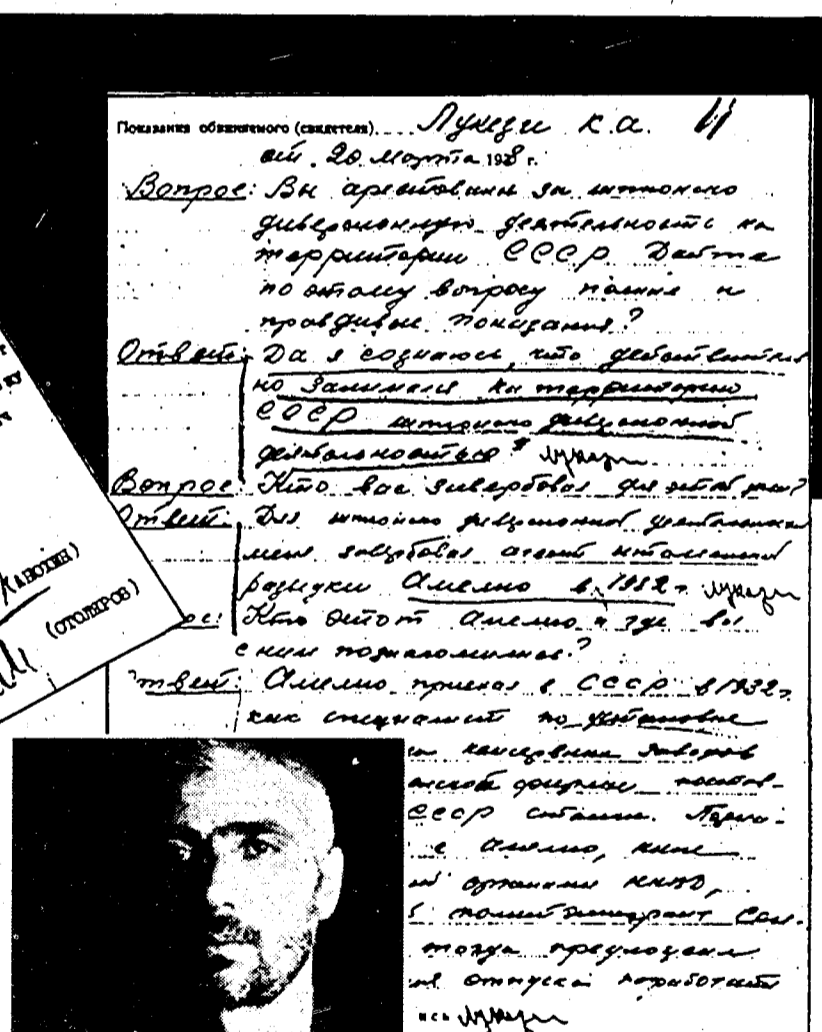 Показания обвиняемого (свидетеля) К. А.
от 20 марта 1938 г.
Вопрос: Вы арестованы за шпионско
диверсионную деятельность на
территории СССР. Дайте
по этому вопросу полные и
правдивые показания?
Ответ: Да я сознаюсь, что действитель
но занимался на территории
СССР шпионско диверсионной
деятельностью
Вопрос: Кто вас завербовал для этой
Ответ: Для шпионско диверсионной деятельности
меня завербовал агент итальянской
разведки Амелио в 1932 г.
ос: Кто этот Амелио и где вы
с ним познакомились?
твет: Амелио приехал в СССР в 1932 г.
как специалист по установке
консервных заводов
фирмы
СССР
с Амелио, ныне
органами НКВД,
политэмигрант
тогда предложил
отпуска поработать
КУ
(СТОЛЯРОВ)